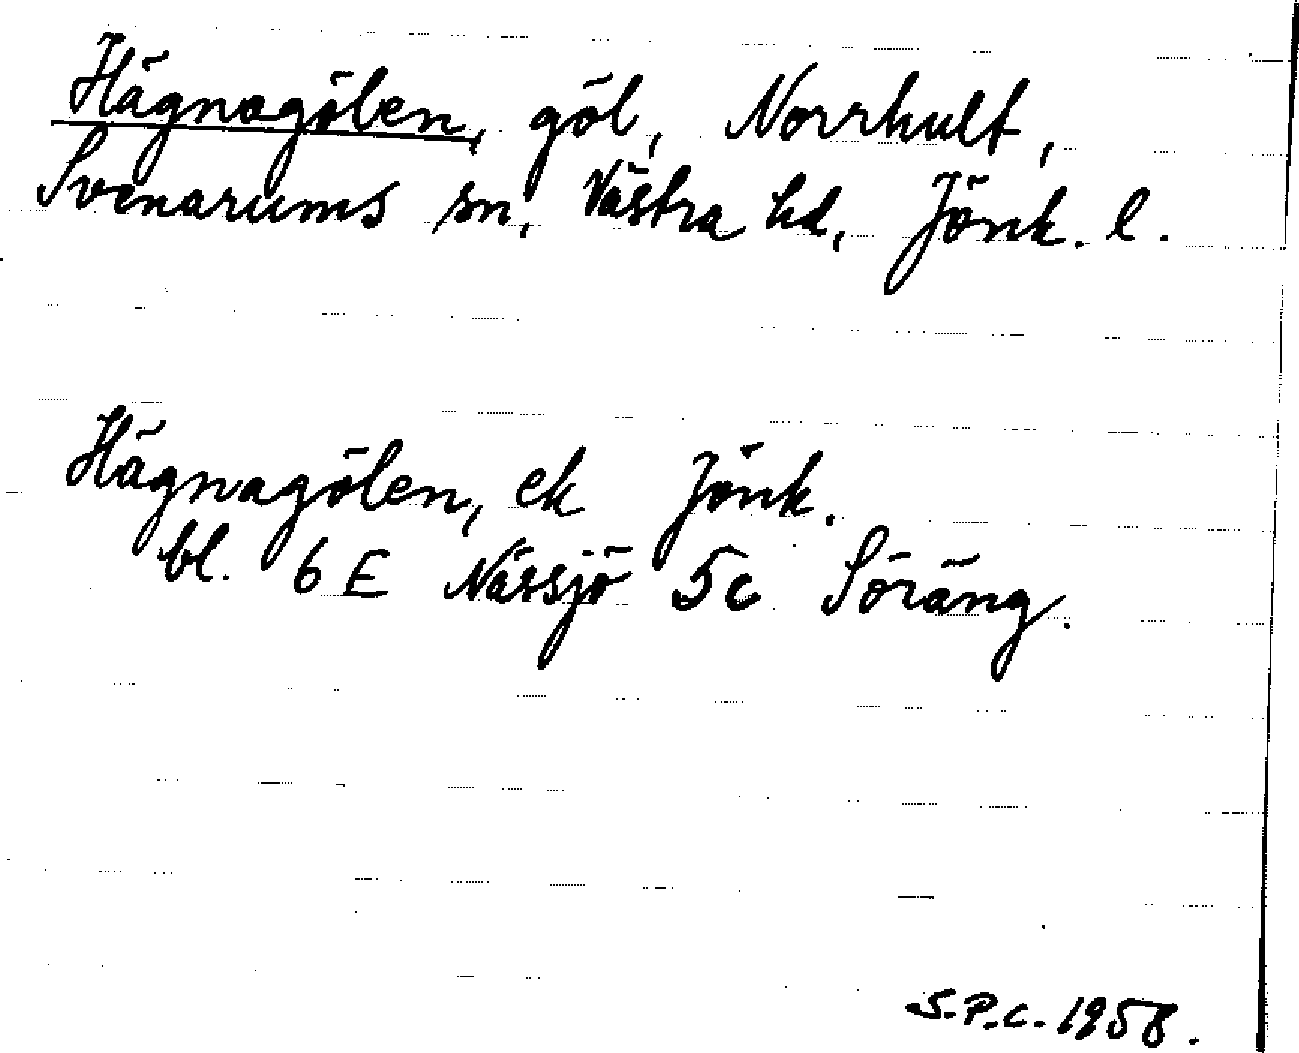 Hägnagölen, göl, Norrhult,
Svenarums sn, Västra hd, Jönk. l.
Hägnagölen, ek Jönk.
bl. 6 E Nässjö 5c Söräng.
S.P.C. 1958.